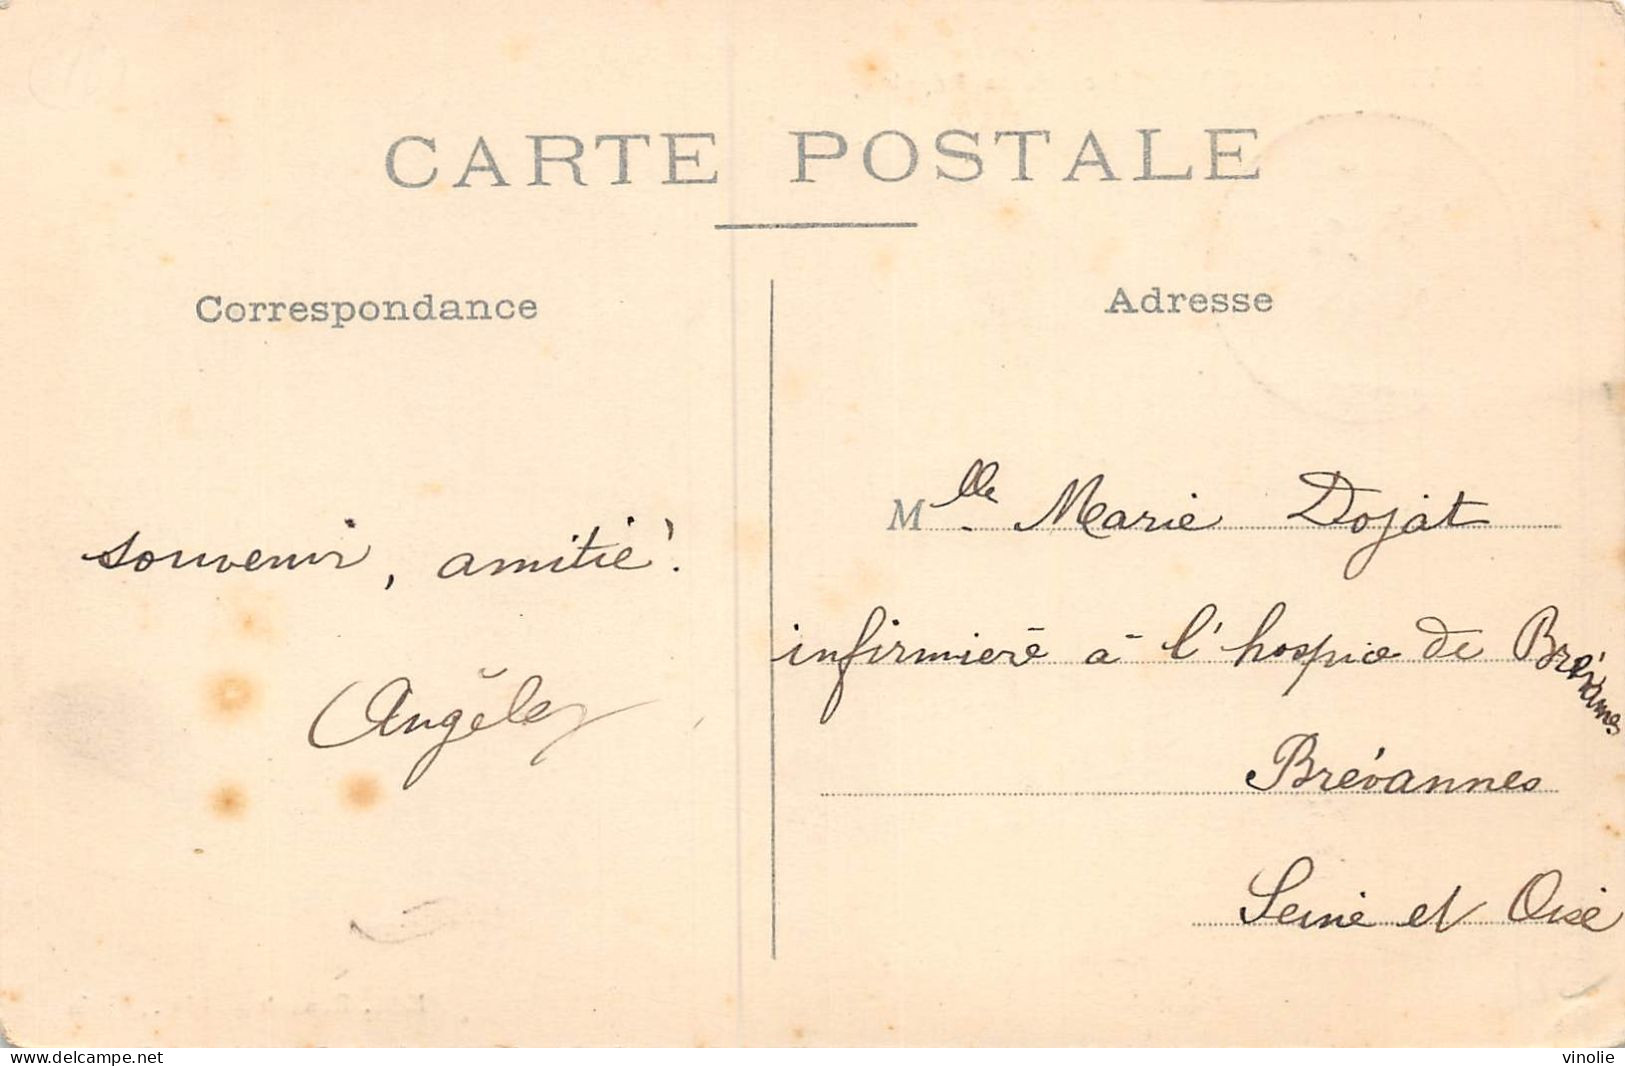 CARTE POSTALE
Correspondance
Adresse
souvenir, amitié!
Angèle
Mlle Marie Dojat
infirmière à l'hospice de Brévannes
Brévannes
Seine et Oise
delcampe.net
vinolie